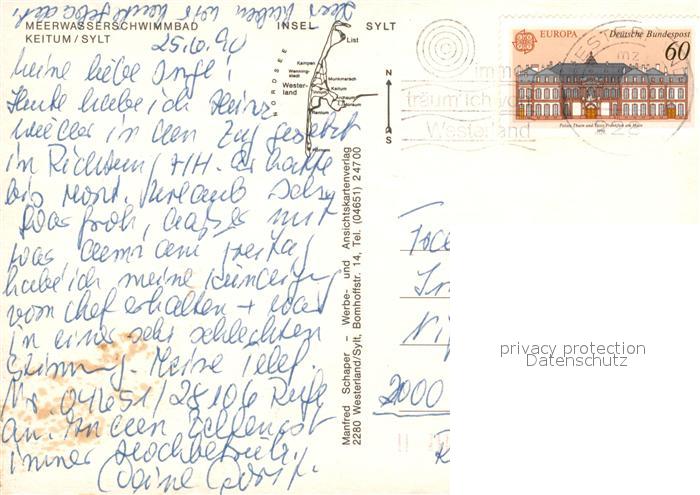 Hier haben wir heut gebadet.
MEERWASSERSCHWIMMBAD
KEITUM/SYLT
INSEL SYLT
25.10.90
Meine liebe Inge!
Heute habe ich Heinz
wieder in den Zug gesetzt
in Richtung HH. Er hatte
bis Mont. Urlaub
war froh, daß es mit
was denn am Freitag
habe ich meine Kündigung
vom Chef erhalten + war
in einer sehr schlechten
Stimmung. Meine Telef.
Nr 04651/28106 Rufe
an. In den
immer Hochbetrieb.
Deine
NORDSEE
List
Kampen
Wenning-
stedt
Munkmarsch
Wester-
land
Keitum
Archsum
Morsum
Rantum
Hörnum
N
S
Manfred Schaper – Werbe- und Ansichtskartenverlag
2280 Westerland/Sylt, Bomhoffstr. 14, Tel. (04651) 24700
EUROPA
Deutsche Bundespost
60
Palais Thurn und Taxis Frankfurt am Main
1990
WESTERLAND
mz
immer
träum ich von
Westerland
2000
privacy protection
Datenschutz